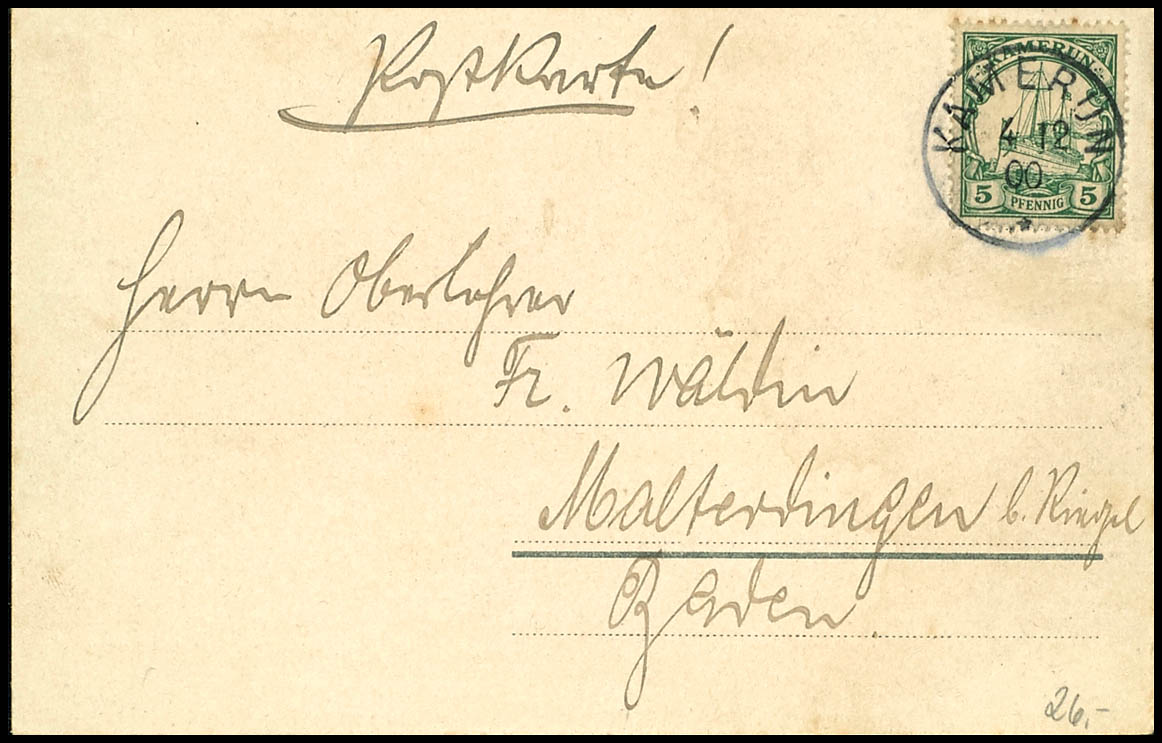 Postkarte!
KAMERUN
KAMERUN
4 12
00.
5 PFENNIG 5
Herrn Oberlehrer
Fr. Wäldin
Malterdingen b. Riegel
Baden
26.-